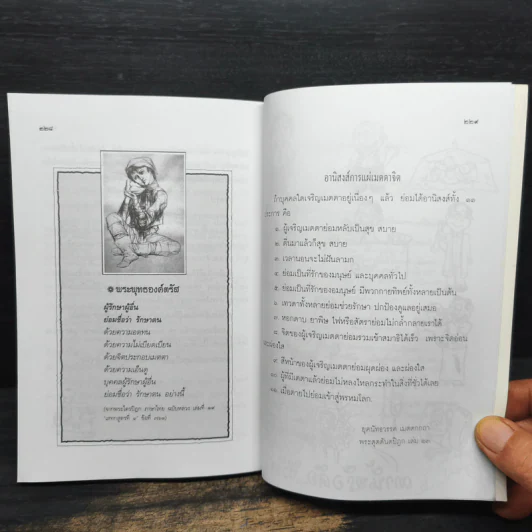 ๒๒๘
พระพุทธองค์ตรัส
ผู้รักษาผู้อื่น
ย่อมชื่อว่า รักษาตน
ด้วยความอดทน
ด้วยความไม่เบียดเบียน
ด้วยจิตประกอบเมตตา
ด้วยความเอ็นดู
บุคคลผู้รักษาผู้อื่น
ย่อมชื่อว่า รักษาตน อย่างนี้
๒๒๙
อานิสงส์การแผ่เมตตาจิต
ถ้าบุคคลใดเจริญเมตตาอยู่เนืองๆ แล้ว ย่อมได้อานิสงส์ทั้ง ๑๑
ประการ คือ
๑. ผู้เจริญเมตตาย่อมหลับเป็นสุข สบาย
๒. ตื่นมาแล้วก็สุข สบาย
๓. เวลานอนจะไม่ฝันลามก
๔. ย่อมเป็นที่รักของมนุษย์ และบุคคลทั่วไป
๕. ย่อมเป็นที่รักของอมนุษย์ มีพวกกายทิพย์ทั้งหลายเป็นต้น
๖. เทวดาทั้งหลายย่อมช่วยรักษา ปกป้องดูแลอยู่เสมอ
๗. หอกดาบ ยาพิษ ไฟหรือสัตราย่อมไม่กล้ำกลายเราได้
๘. จิตของผู้เจริญเมตตาย่อมรวมเข้าสมาธิได้เร็ว เพราะจิตอ่อน
ผ่องใส
๙. สีหน้าของผู้เจริญเมตตาย่อมผุดผ่อง และผ่องใส
๑๐. ผู้ที่มีเมตตาแล้วย่อมไม่หลงใหลกระทำในสิ่งที่ชั่วได้เลย
๑๑. เมื่อตายไปย่อมเข้าสู่พรหมโลก
พระสุตตันตปิฎก เล่ม ๒๓